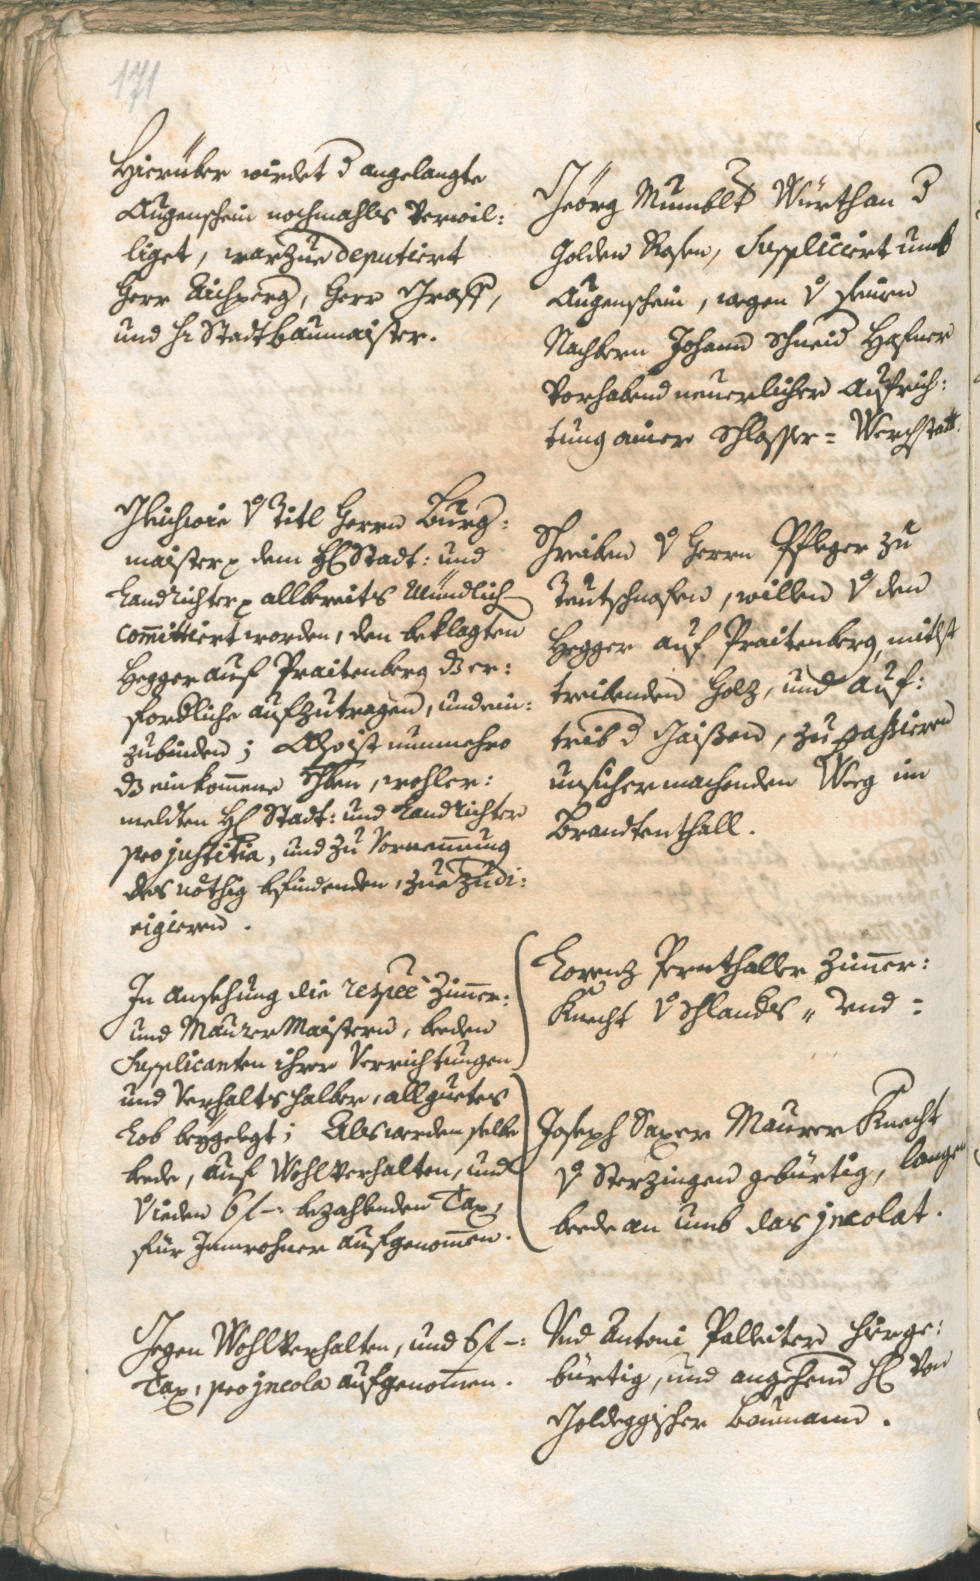 171
Hierüber wirdet d angelangte
Augenschein nochmahls verwil:
liget, warzue deputiert
Herr Aichperg, Herr Grass,
und Hr Stadtbaumaister.
Geörg Würth an d
Golden Rosen, Suppliciert umb
Augenschein, wegen v seinen
Nachbern Johann Schneid Hafner
vorhabend neuerlichen Aufrich:
tung ainer Schlosser= Werchstatt.
Gleichwie v Titl Herrn Burg:
maister dem H Stadt: und
Landrichter allbereits Mündlich
committiert worden, den beklagten
Hegger auf Praitenberg dz er:
fordliche aufzutragen, und ein:
zubinden; Also ist nunmehro
dz einkommene Schben, wohler:
melten H Stadt: und Landrichter
pro justitia, und zu Vornemmung
des nöthig befindenden, zue zu di:
rigieren.
Schreiben v Herrn Pfleger zu
Teutschnofen, willen v den
Hegger auf Praitenberg, mitlst
treibenden Holz, und auf:
trib d Gaißen, zu passieren
unsicher machenden Weeg im
Brandtenthall.
In Ansehung die respee Zimer:
und Maurer Maistern, beeden
Supplicanten ihrer Verrichtungen
und Verhalts halber, all guetes
Lob beygelegt; Als werden selbe
beede, auf Wohlverhalten, und
v ieden 6 f –: bezahlenden Tax,
für Innwohner aufgenomen.
Lorenz Pernthaller Zimer:
Knecht v Schlanders, und =
Joseph Saxer Maurer Knecht
v Sterzingen gebürtig, langen
beede an umb das jncolat.
Gegen Wohlverhalten, und 6 f –:
Tax, pro jncola aufgenomen.
Und Antoni Palleiter hierge:
bürtig, und angehend H von
Goldeggischer Baumann.